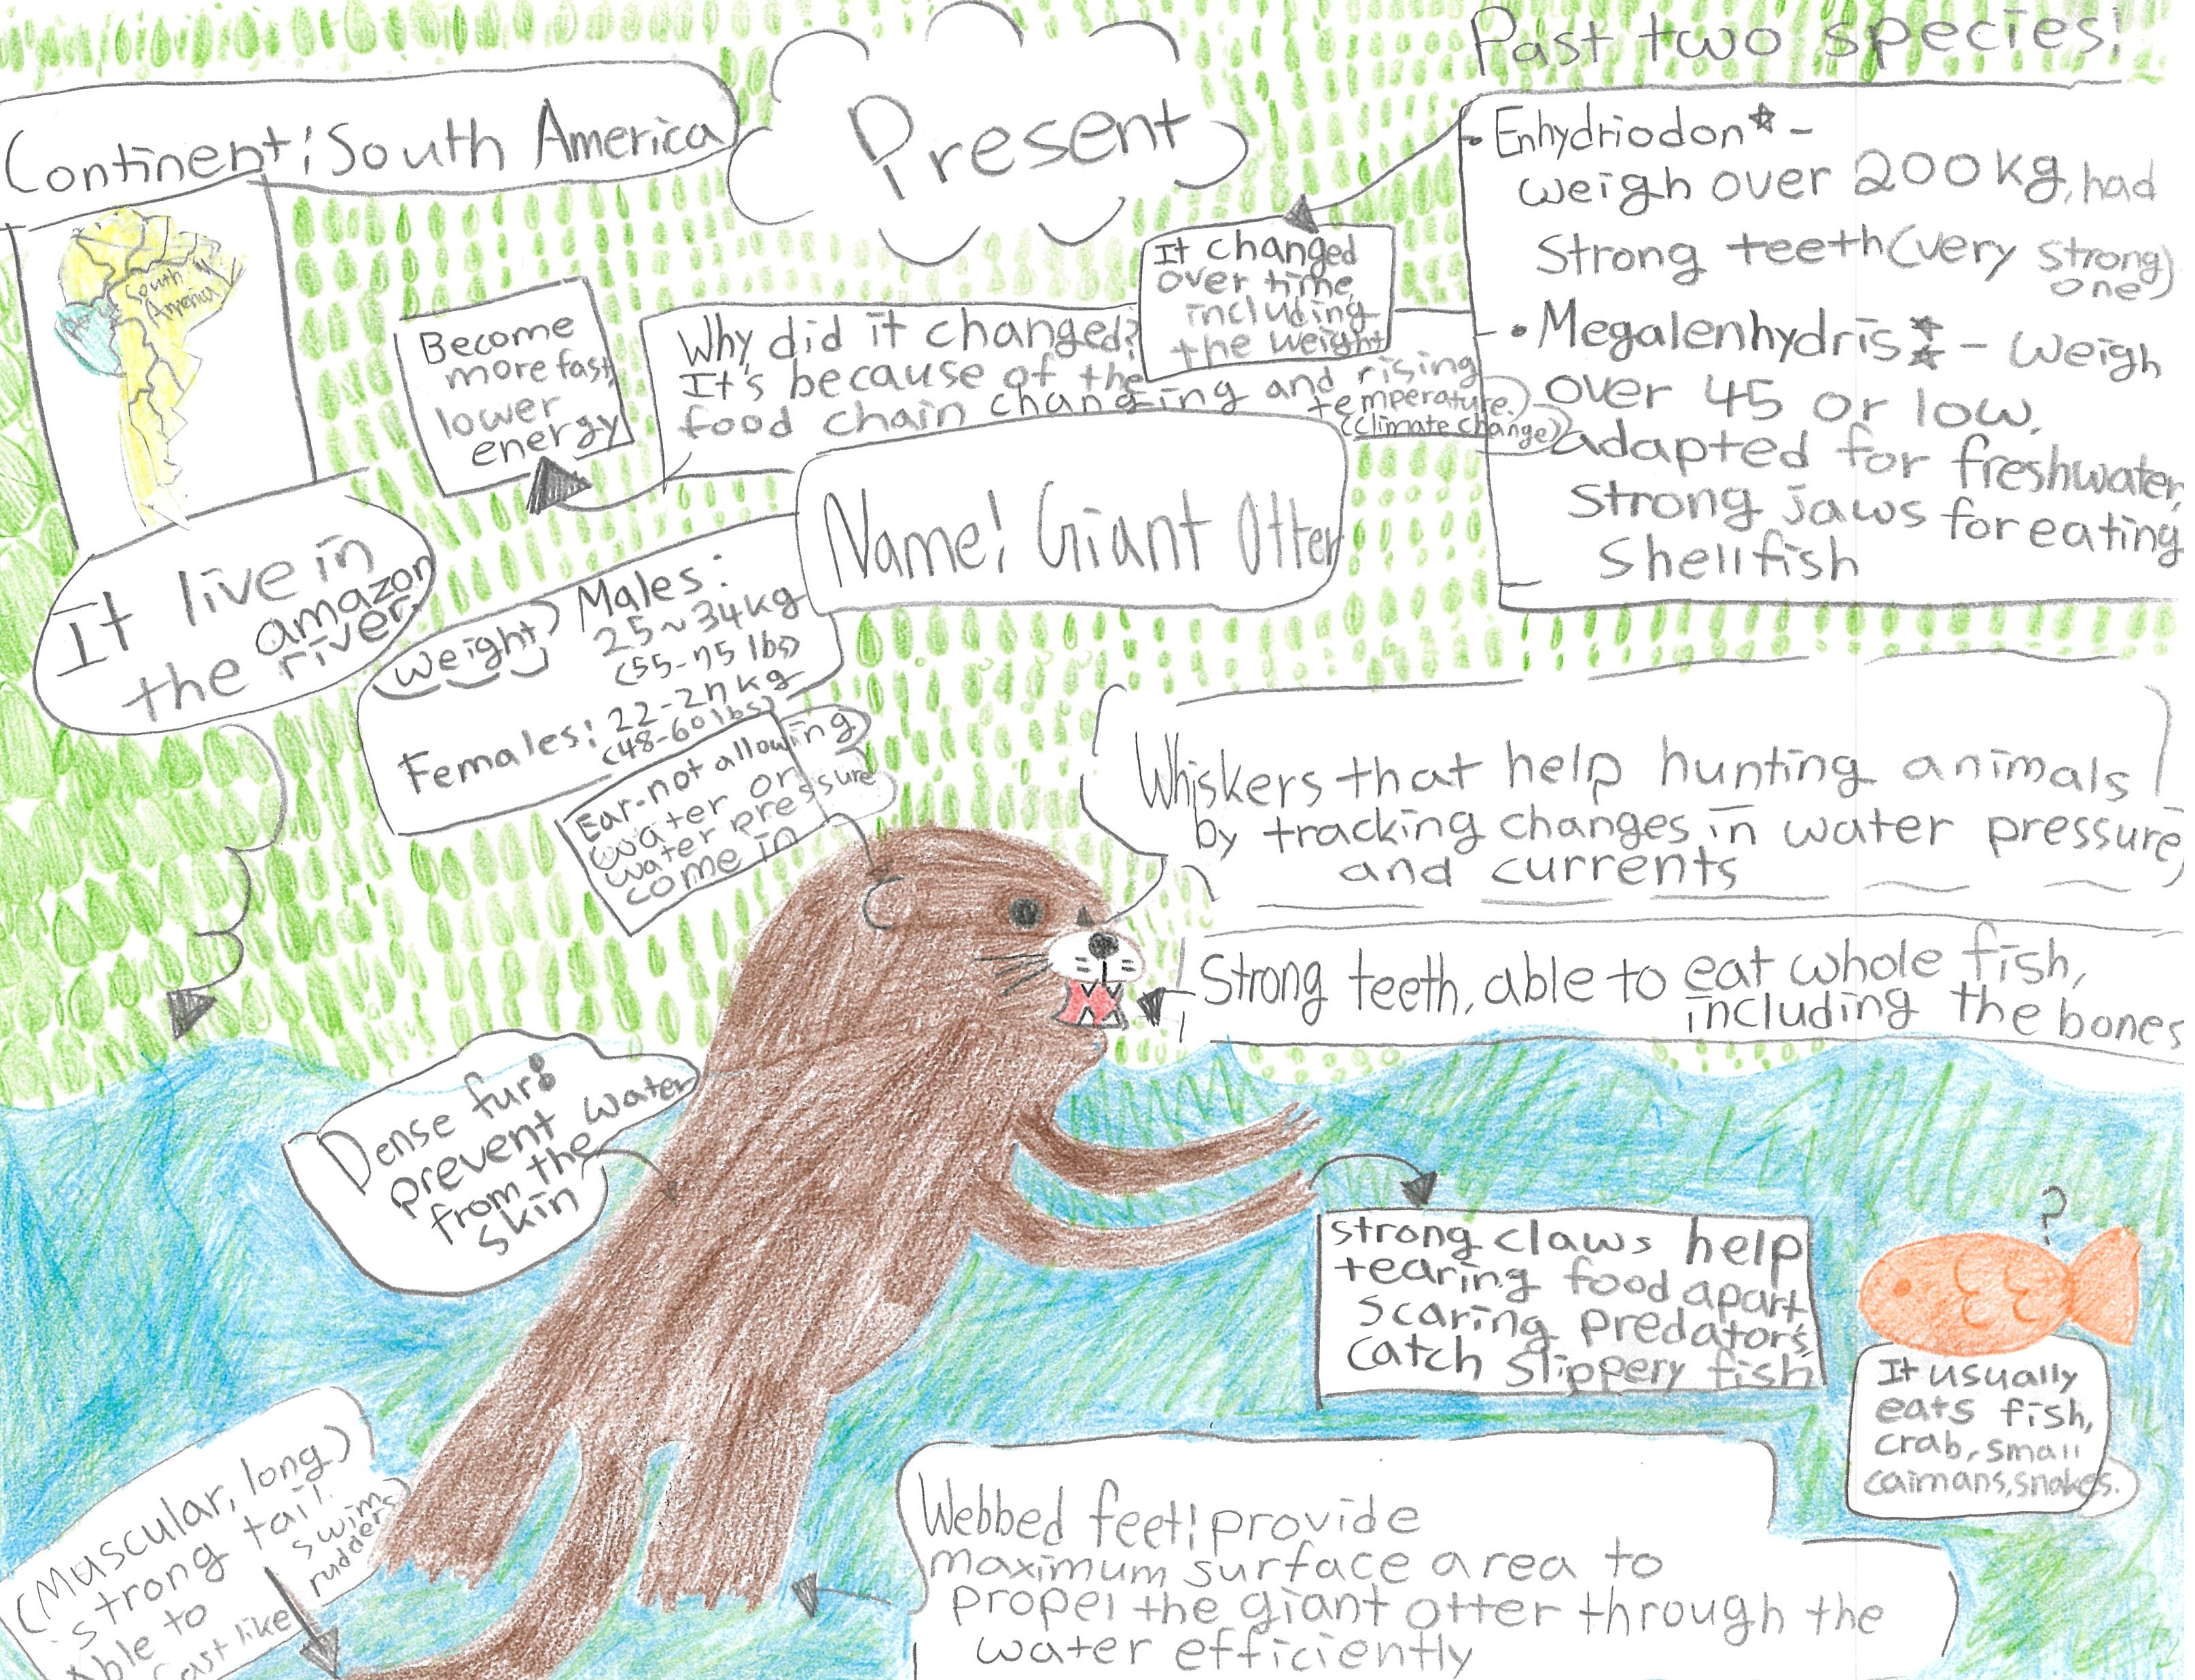 Present
Past two species:
Continent: South America
South
America
Peru
• Enhydriodon* -
weigh over 200 kg, had
strong teeth (very strong
one)
• Megalenhydris** - weigh
over 45 or low,
adapted for freshwater,
Strong jaws for eating
Shellfish
It changed
over time,
including
the weight
Why did it changed?
It's because of the
food chain changing and rising
temperature.
(climate change)
Become
more fast,
lower
energy
Name: Giant Otter
It live in
the amazon
river.
Weight
Males:
25~34kg
(55-75 lbs)
Females: 22-27kg
(48-60 lbs)
Ear-not allowing
water or
water pressure
come in
Whiskers that help hunting animals
by tracking changes in water pressure
and currents
Strong teeth, able to eat whole fish,
including the bones
Dense fur:
prevent water
from the
skin
strong claws help
tearing food apart,
scaring predators,
catch slippery fish
?
It usually
eats fish,
crab, small
caimans, snakes.
(Muscular, long)
strong tail.
Able to swim
fast like rudders
Webbed feet: provide
maximum surface area to
propel the giant otter through the
water efficiently